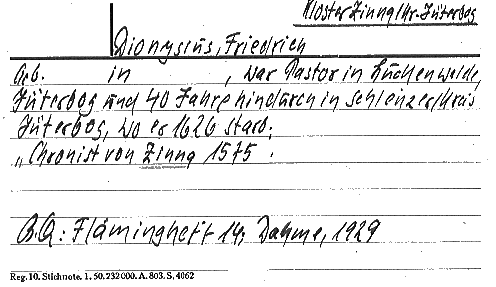 Kloster Zinna/Kr. Jüterbog
Dionysius, Friedrich
Geb. in , war Pastor in Luckenwalde,
Jüterbog und 40 Jahre hindurch in Schlenzer/Kreis
Jüterbog, wo er 1626 starb.
"Chronist von Zinna 1575.
B.Q.: Fläminghett 14; Dahme, 1929
Reg. 10. Stichnote. 1. 50. 232000. A. 803. S. 4062